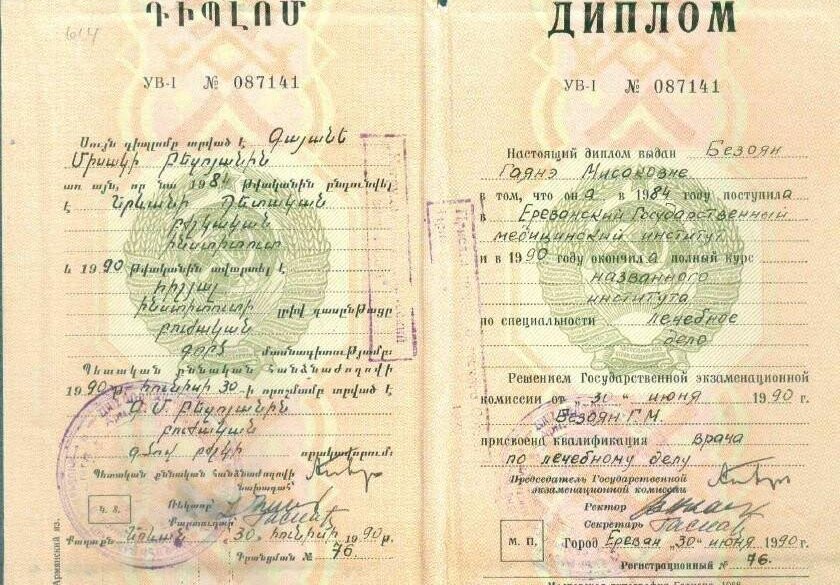 ԴԻՊԼՈՄ
УВ-I № 087141
Սույն դիպլոմը տրված է Գայանե
Միսակի Բեզոյանին
առ այն, որ նա 1984 թվականին ընդունվել
է Երևանի Պետական
բժշկական
ինստիտուտ
և 1990 թվականին ավարտել է
հիշյալ
ինստիտուտի լրիվ դասընթացը
բուժական
գործ մասնագիտությամբ:
Պետական քննական հանձնաժողովի
1990 թ. հունիսի 30-ի որոշմամբ տրված է
Գ. Մ. Բեզոյանին
բուժական
գծով բժշկի որակավորում:
Պետական քննական հանձնաժողովի
նախագահ՝
Կ. Տ.
Ռեկտոր
Քարտուղար
Քաղաք Երևան "30" հունիսի 1990 թ.
Գրանցման № 76
Армянский яз.
ДИПЛОМ
УВ-I № 087141
Настоящий диплом выдан Безоян
Гаянэ Мисаковне
в том, что она в 1984 году поступила
в Ереванский Государственный
медицинский институт
и в 1990 году окончила полный курс
названного
института
по специальности лечебное
дело
Решением Государственной экзаменационной
комиссии от „30" июня 1990 г.
Безоян Г.М.
присвоена квалификация врача
по лечебному делу
Председатель Государственной
экзаменационной комиссии
Ректор
Секретарь
М. П. Город Ереван "30" июня 1990 г.
Регистрационный № 76.